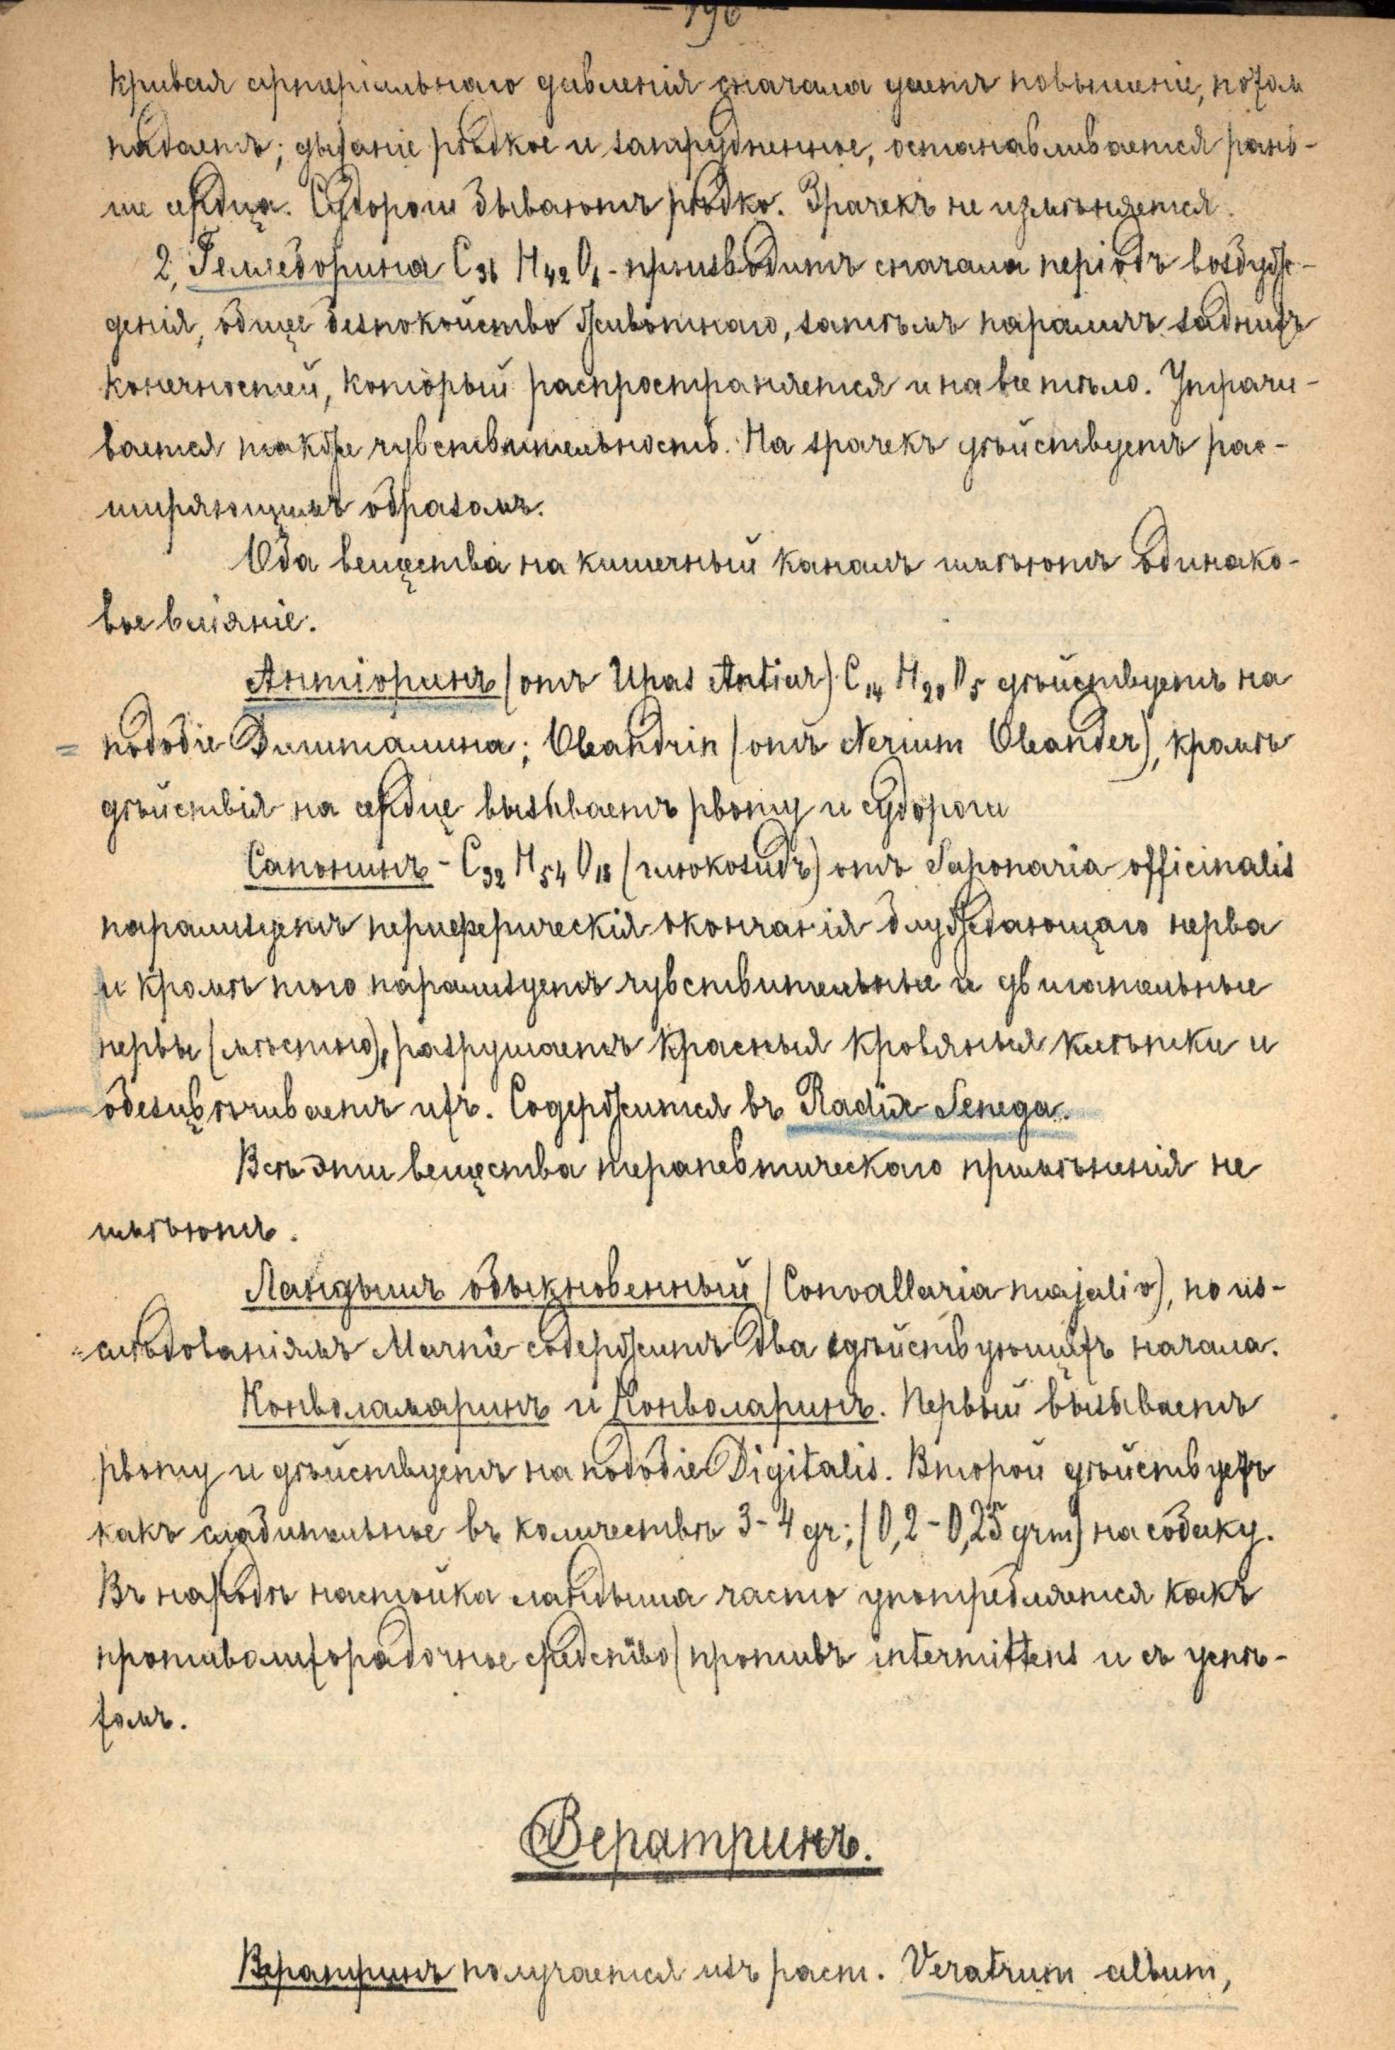 — 196 —
кривая артеріальнаго давленія сначала даетъ повышеніе, потомъ
падаетъ; дыханіе рѣдкое и затрудненное, останавливается рань-
ше сердца. Судороги бываютъ рѣдко. Зрачекъ не измѣняется.
2, Геллеборина C36 H42 O6 - производитъ сначала періодъ возбуж-
денія, общее безпокойство животнаго, затѣмъ параличъ заднихъ
конечностей, который распространяется и на все тѣло. Утрачи-
вается также чувствительность. На зрачекъ дѣйствуетъ рас-
ширяющимъ образомъ.
Оба вещества на кишечный каналъ имѣютъ одинако-
вое вліяніе.
Антіаринъ (отъ Upas Antiar) C14 H20 O5 дѣйствуетъ на
подобіе Дигиталина; Oleandrin (отъ Nerium Oleander), кромѣ
дѣйствія на сердце вызываетъ рвоту и судороги
Сапонинъ - C32 H54 O18 (глюкозидъ) отъ Saponaria officinalis
парализуетъ периферическія окончанія блуждающаго нерва
и кромѣ того парализуетъ чувствительные и двигательные
нервы (мѣстно), разрушаетъ красныя кровяныя клѣтки и
обезцвѣчиваетъ ихъ. Содержится въ Radix Senega.
Всѣ эти вещества терапевтическаго примѣненія не
имѣютъ.
Ландышъ обыкновенный (Convallaria majalis), по из-
слѣдованіямъ Marmé содержитъ два дѣйствующихъ начала.
Конволамаринъ и Конволаринъ. Первый вызываетъ
рвоту и дѣйствуетъ на подобіе Digitalis. Второй дѣйствуетъ
какъ слабительное въ количествѣ 3-4 gr; (0,2-0,25 grm) на собаку.
Въ народѣ настойка ландыша часто употребляется какъ
противолихорадочное средство (противъ intermittens и съ успѣ-
хомъ.
Вератринъ.
Вератринъ получается изъ раст. Veratrum album,